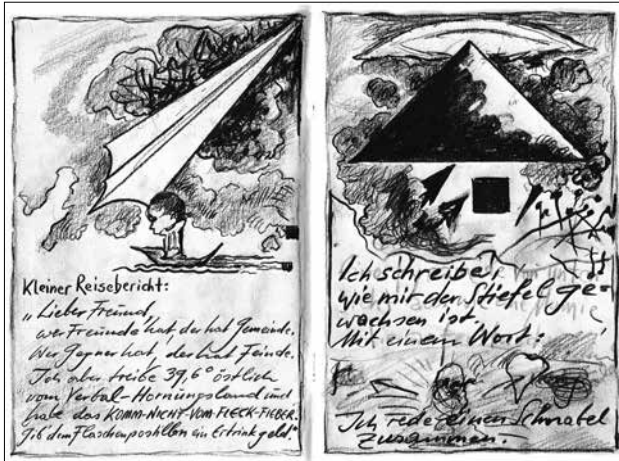 Kleiner Reisebericht:
„Lieber Freund,
wer Freunde hat, der hat Gemeinde.
Wer Gegner hat, der hat Feinde.
Ich aber treibe 39,6° östlich
vom Verbal-Hornungsland und
habe das KOMM-NICHT-VOM-FLECK-FIEBER.
Gib dem Flaschenpostillon ein Ertrinkgeld."
Ich schreibe,
wie mir der Stiefel ge-
wachsen ist.
Mit einem Wort:
Ich rede einen Schnabel
zusammen.